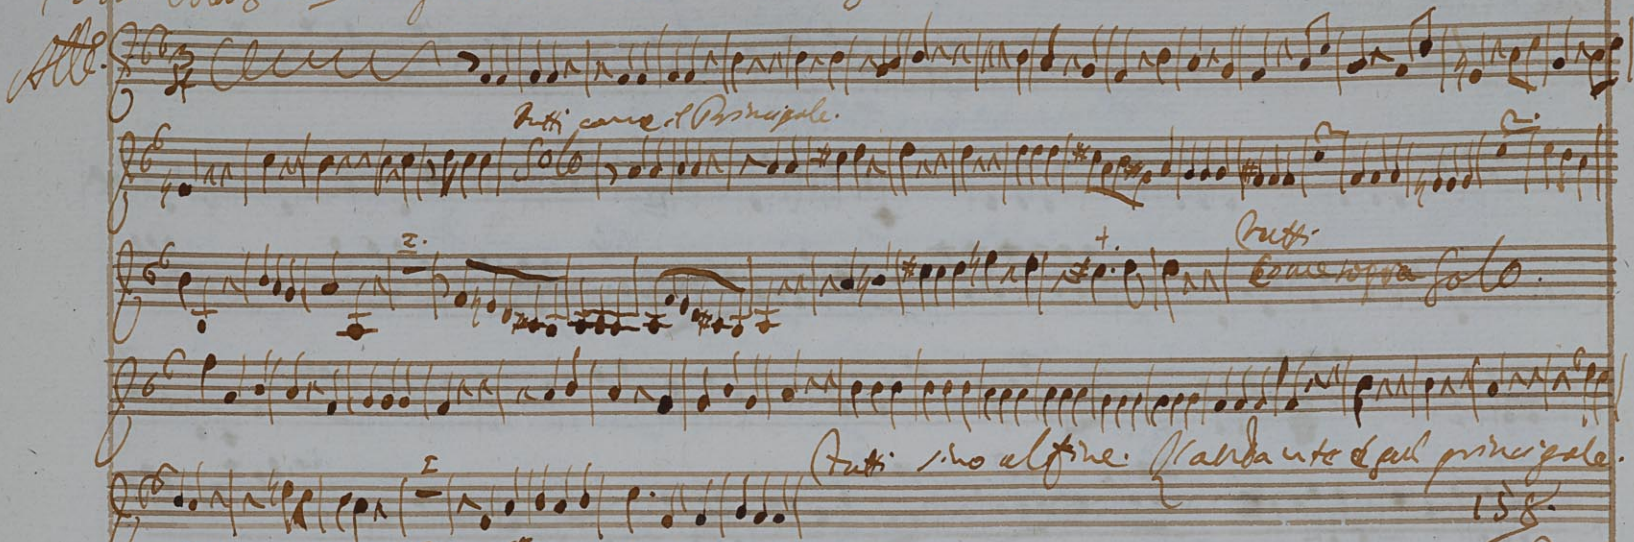 Allº.
Tutti come il Principale.
Solo
Tutti
Come sopra Solo.
Tutti sino al fine. L'andante è pul principale.
158.